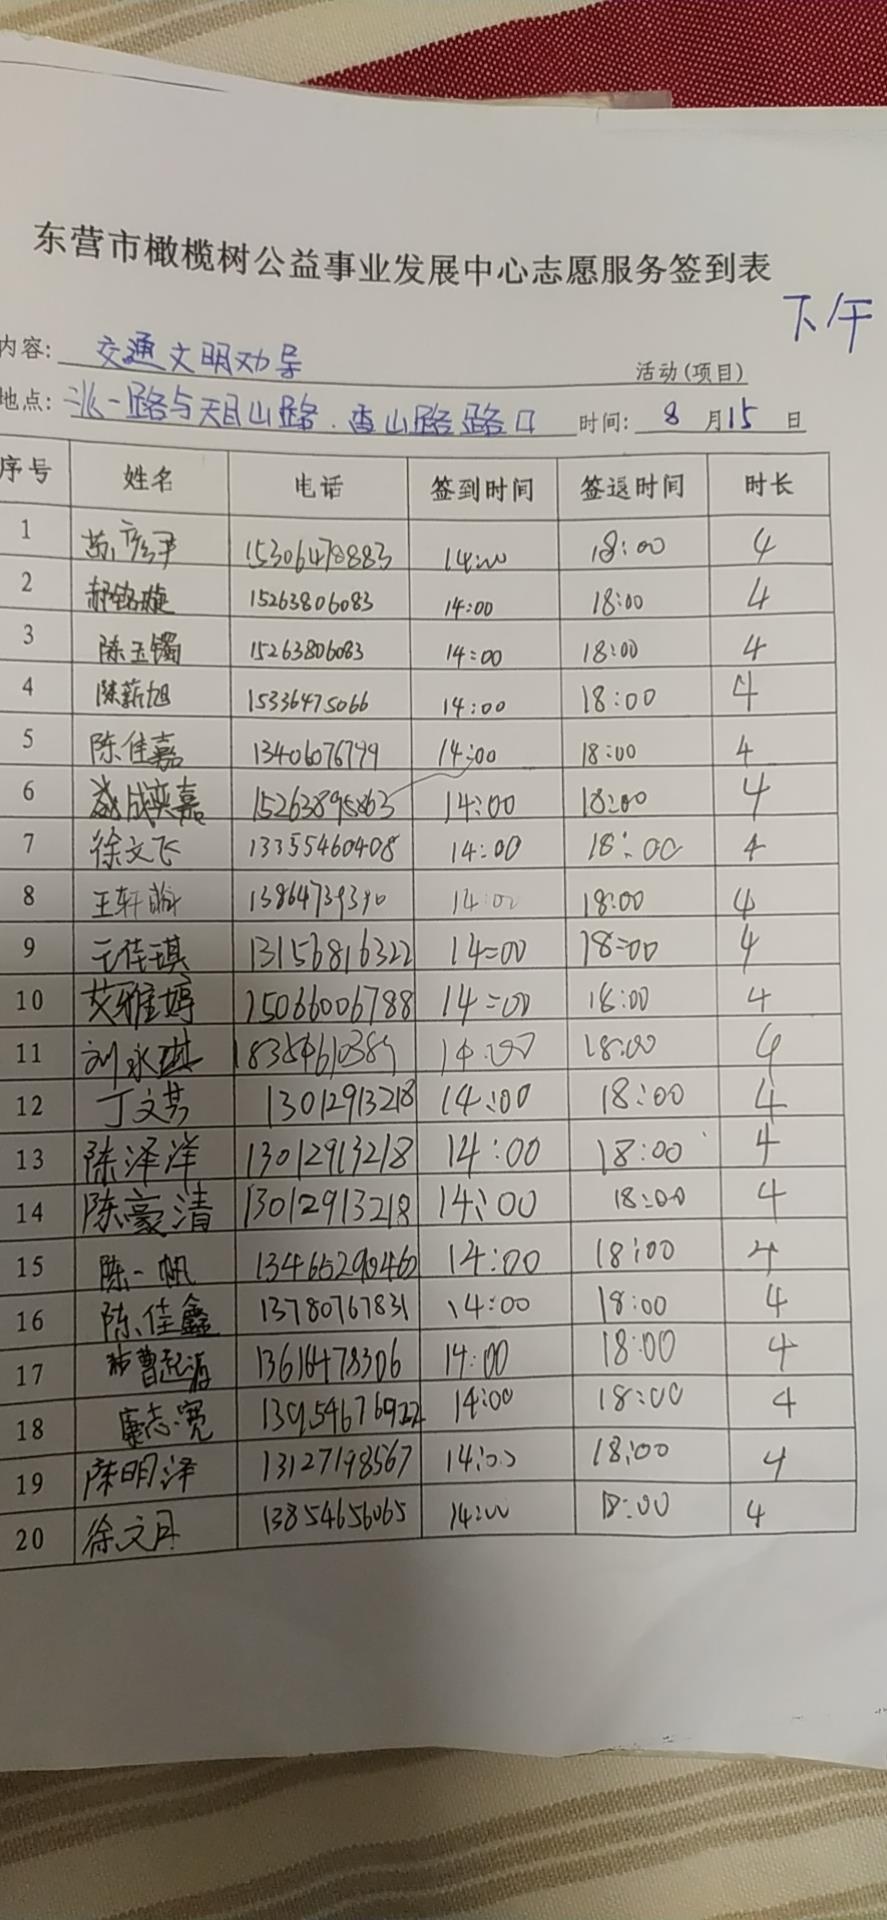 东营市橄榄树公益事业发展中心志愿服务签到表
下午
内容: 交通文明劝导 活动(项目)
地点: 一路与天目山路.香山路路口 时间: 8月15日
序号 姓名 电话 签到时间 签退时间 时长
1 15306478883 14:00 18:00 4
2 郝铭璇 15263806083 14:00 18:00 4
3 陈玉镯 15263806083 14:00 18:00 4
4 陈薪旭 15336475066 14:00 18:00 4
5 陈佳嘉 13406076799 14:00 18:00 4
6 成奕嘉 15263895863 14:00 18:00 4
7 徐文飞 13355460408 14:00 18:00 4
8 王轩 14:00 18:00 4
9 王佳琪 13156816322 14:00 18:00 4
10 艾雅婷 15066006788 14:00 18:00 4
11 刘永琪 14:00 18:00 4
12 丁文芳 13012913218 14:00 18:00 4
13 陈泽洋 13012913218 14:00 18:00 4
14 陈豪清 13012913218 14:00 18:00 4
15 陈一帆 13465290460 14:00 18:00 4
16 陈佳鑫 13780767831 14:00 18:00 4
17 曹起源 13616478306 14:00 18:00 4
18 廉志宽 14:00 18:00 4
19 陈明泽 13127198567 14:00 18:00 4
20 徐文月 13854656065 14:00 18:00 4